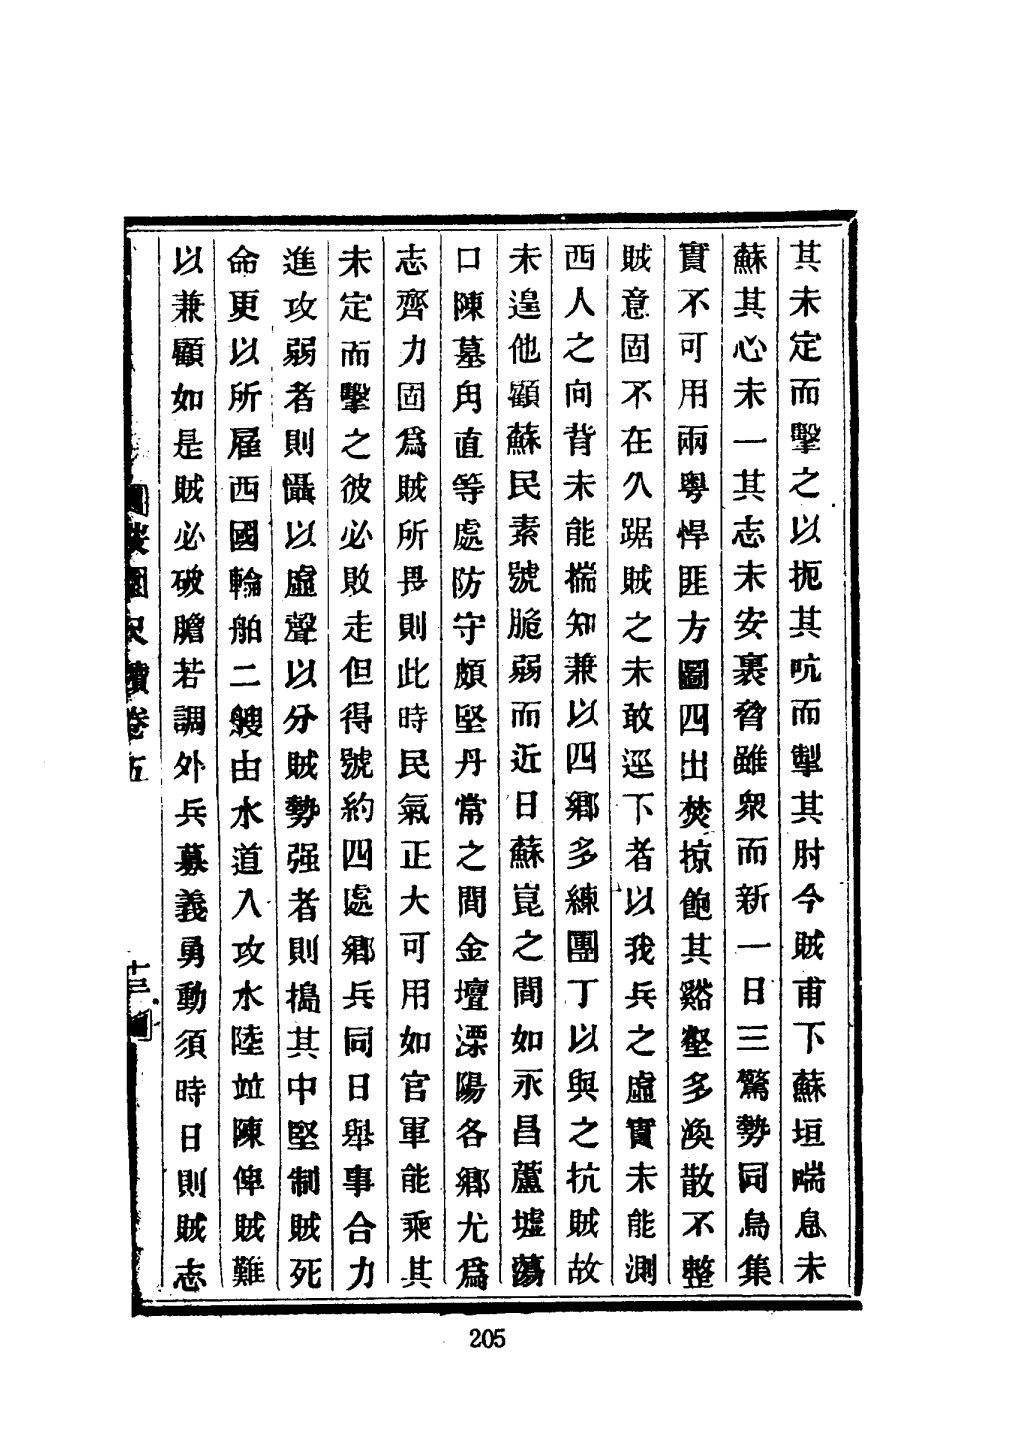 其未定而擊之以扼其吭而掣其肘今賊甫下蘇垣喘息未
蘇其心未一其志未安裹脅雖衆而新一日三驚勢同烏集
實不可用兩粵悍匪方圖四出焚掠飽其谿壑多渙散不整
賊意固不在久踞賊之未敢逕下者以我兵之虛實未能測
西人之向背未能揣知兼以四鄉多練團丁以與之抗賊故
未遑他顧蘇民素號脆弱而近日蘇崑之間如永昌蘆墟蕩
口陳墓角直等處防守頗堅丹常之間金壇溧陽各鄉尤爲
志齊力固爲賊所畏則此時民氣正大可用如官軍能乘其
未定而擊之彼必敗走但得號約四處鄉兵同日舉事合力
進攻弱者則懾以虛聲以分賊勢强者則搗其中堅制賊死
命更以所雇西國輪舶二艘由水道入攻水陸竝陳俾賊難
以兼顧如是賊必破膽若調外兵募義勇動須時日則賊志
園尺牘卷五
十三
205